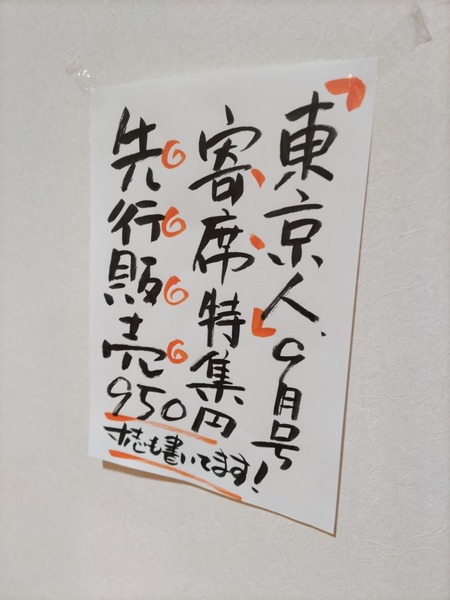 「東京人」9月号
寄席特集
先行販売
950円
寸志も書いてます!